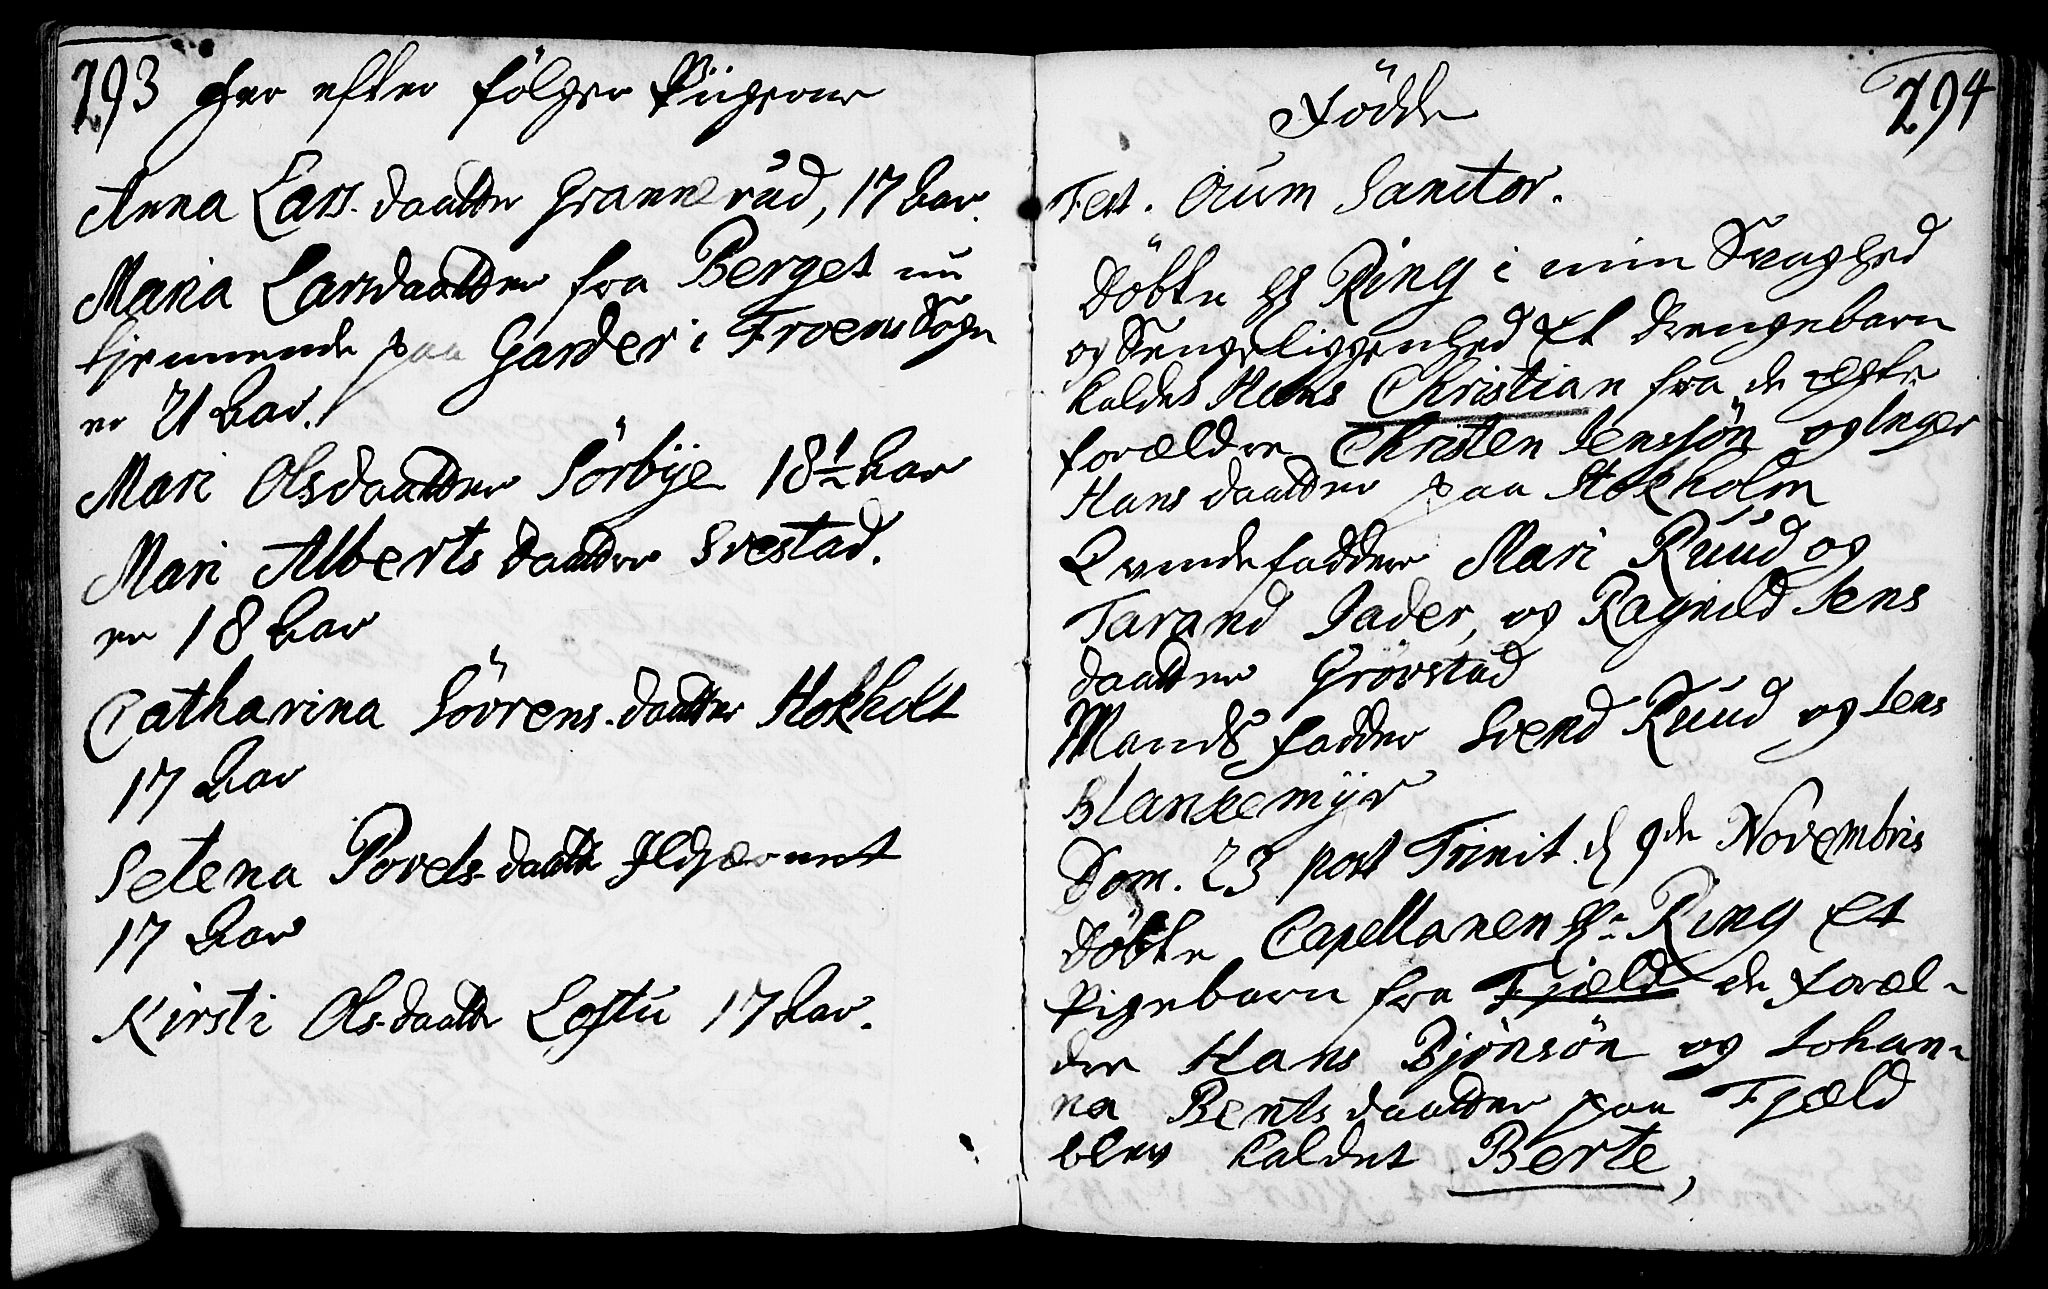 293 Her efter følger Piigerne
Anna Lars-daatter Grannerud, 17 Aar.
Maria Larsdaatter fra Berget nu
tjennende paa Garder i Froens Sogn
er 21 Aar.
Mari Olsdaatter Sörbÿe 18½ Aar
Mari Alberts daatter Svestad.
er 18 Aar
Catharina Sövrens-daatter Hokholt
17 Aar
Setena Povels-daatter Ildjærnet
17 Aar
Kirsti Ols-daatter Loftu 17 Aar.
Födde 294
Fest. Oium Sanctor.
Döbte Hr Ring i min Svaghed
og Sengeliggenhed Et Drengebarn
kaldet Hans Christian fra de ægte
forældre Christen Jenssön og Inger
Hans daatter paa Stokholm
Qvindefaddere Mari Ruud og
Tarand Jader, og Ragnild Jens
daatter Grövstad
Mands fadder Svend Ruud og Jens
Blankemÿr
Dom. 23 post Trinit. d 9de Novembris
Döbte Capellanen Hr Ring Et
Pigebarn fra Fjæld de Foræl-
dre Hans Bjönsön og Johan-
na Bentsdaatter paa Fjæld
blev kaldet Berte,